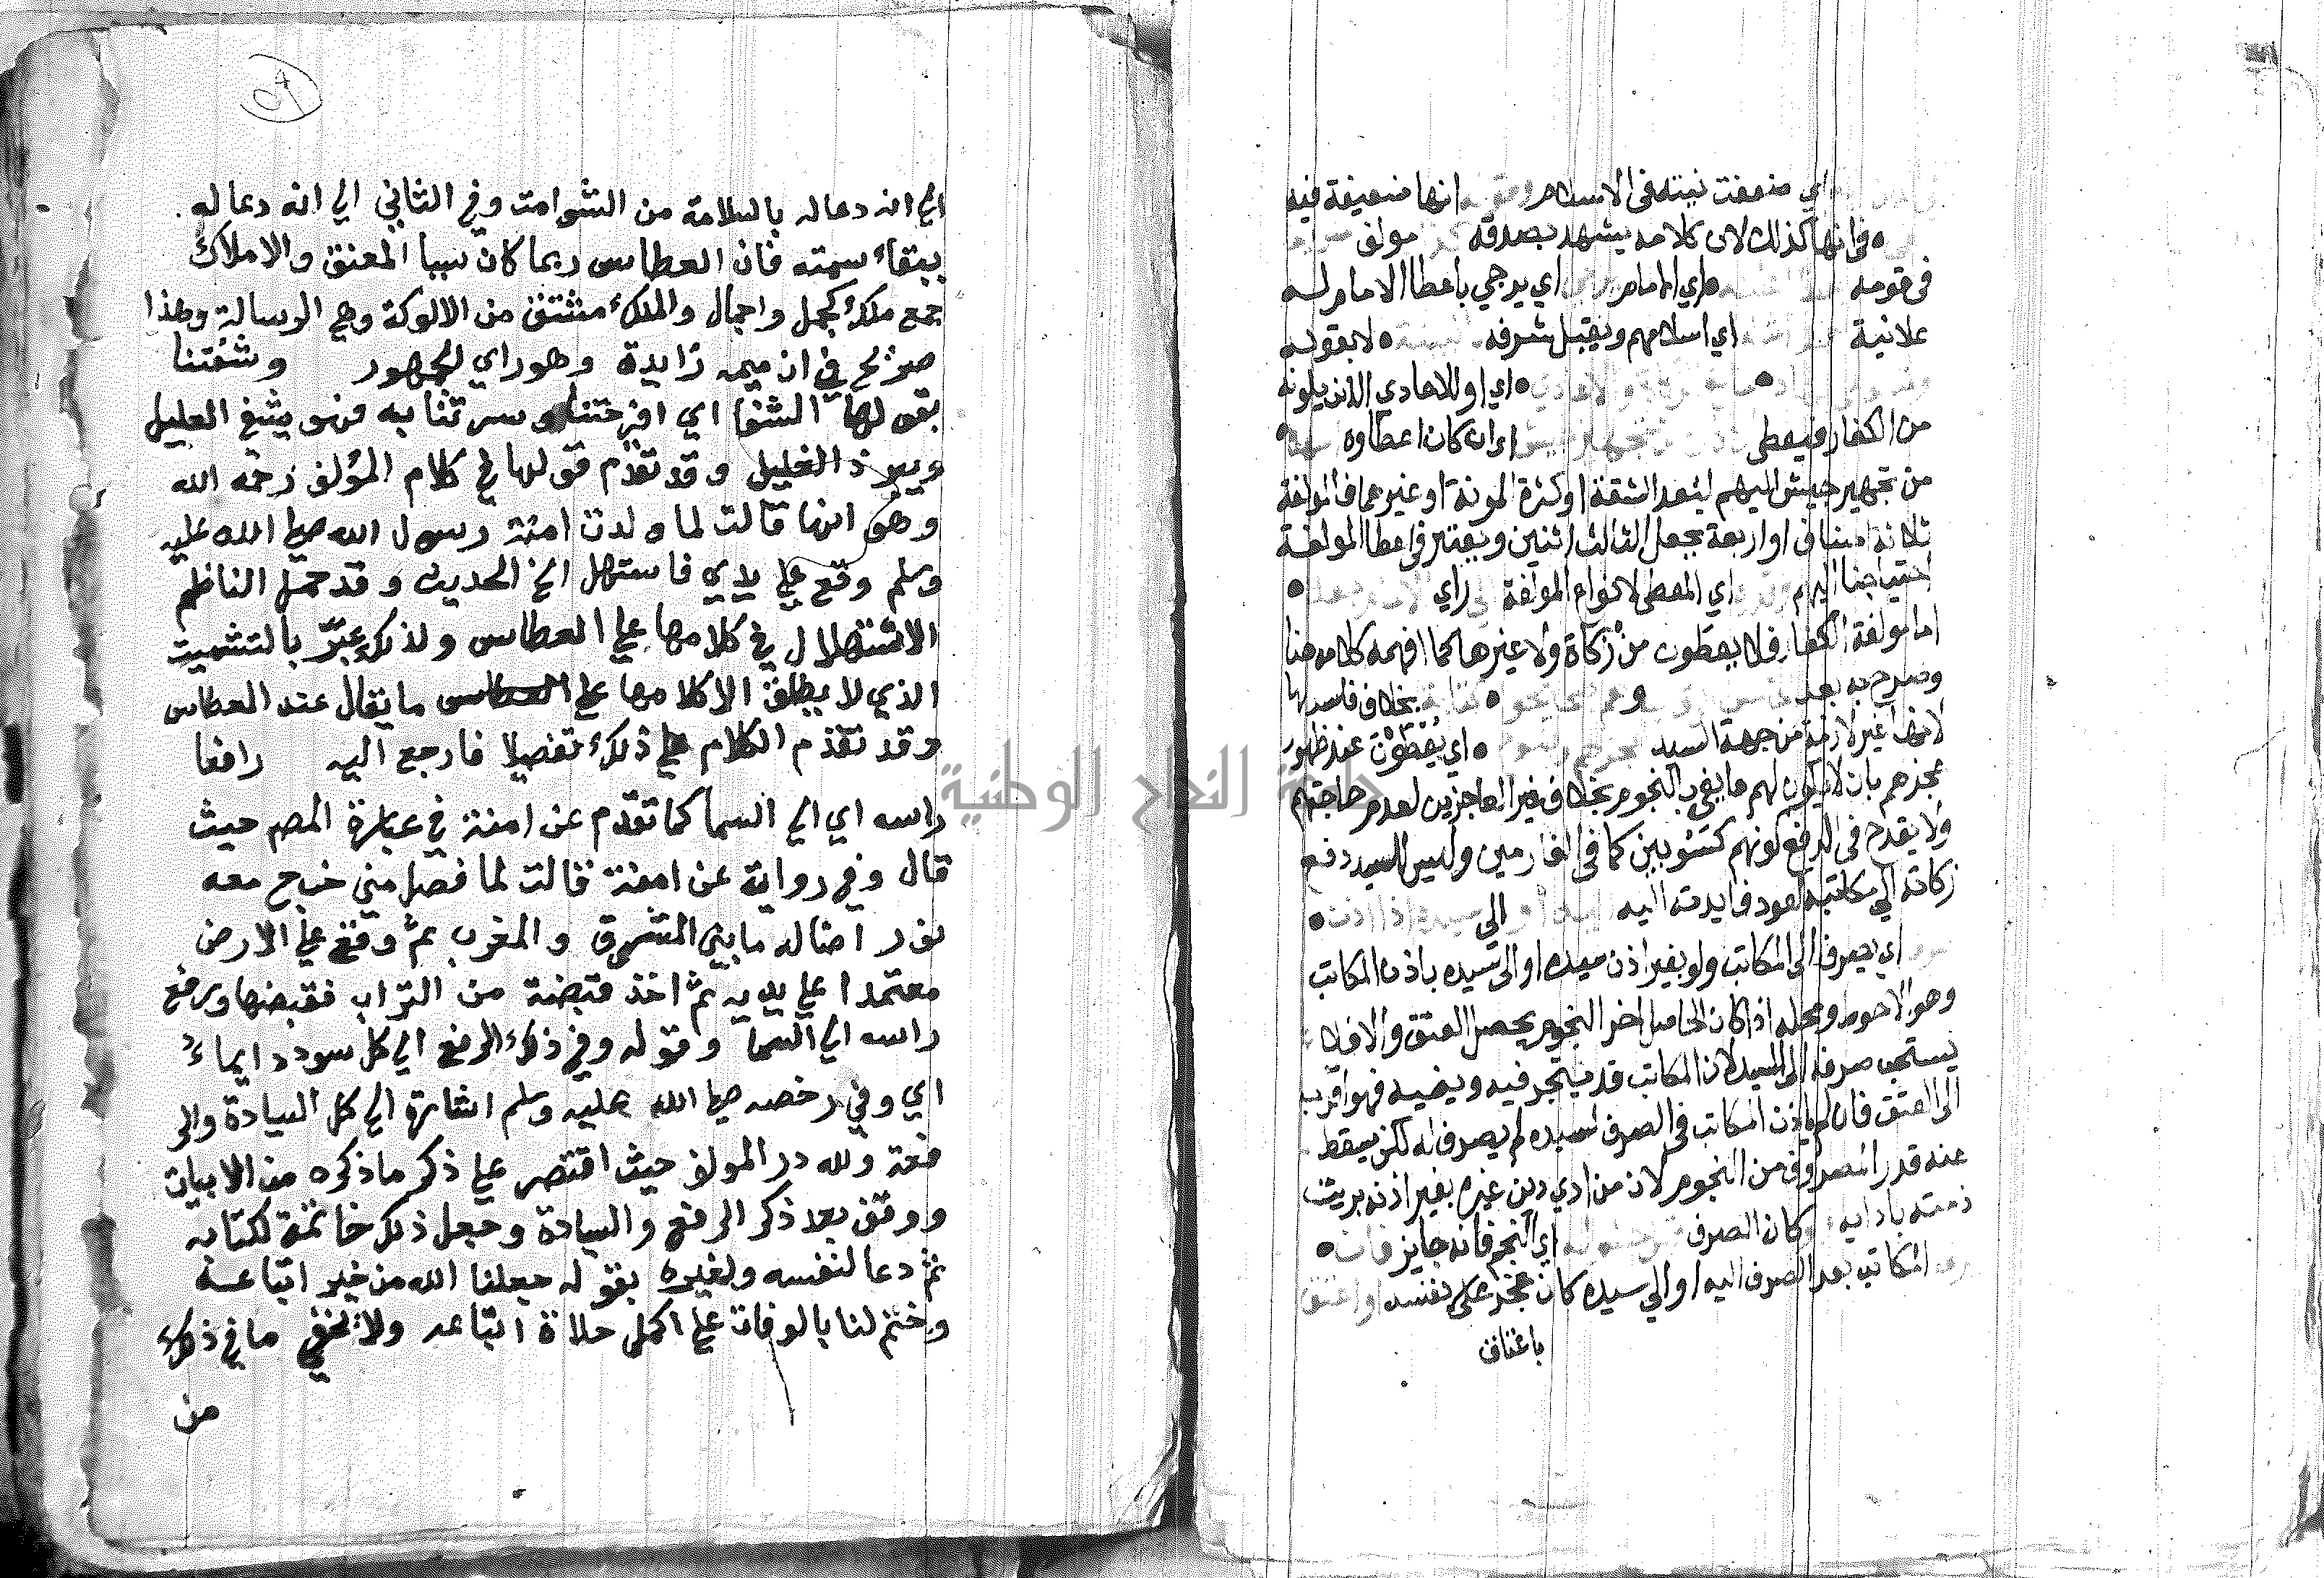 اي ضعفت نيته في الاسلام انها ضعيفة فيه
في انها كذلك لان كلامه يشهد بصدقه مولف
في قومه اي الامام اي يرجي باعطا الامام له
علانية اي اسلامهم ويقبل شرفه لا بقوله
اي اوللاعادي الذين يلونه
من الكفار فيعطي اي ان كان اعطاوه
من تجهيز جيش اليهم لبعد الشقة او كثرة المونة او غيرهما فالمولفة
ثلاثة اصناف او اربعة بجعل الثالث اثنين ويعتبر في اعطا المولفة
احتياجنا اليهم اي المعطي لانواع المولفة راي
اما مولفة الكفار فلا يعطون من زكاة ولا غيرها كما افهمه كلامه هنا
وصرح به بعد بخلاف فاسدها
لانها غير لازمة من جهة السيد اي يعطون عند ظهور
عجزهم بان لا يكون لهم ما يفي بالنجوم بخلاف غير العاجزين لعدم حاجتهم
ولا يقدح في الدفع كونهم كسوبين كما في الغارمين وليس للسيد دفع
زكاته الي مكاتبه لعود فايدته اليه الي
اي يصرف الي المكاتب ولو بغير اذن سيده او الي سيده باذن المكاتب
وهو الاحوط ومحله اذا كان الحاصل اخر النجوم يحصل العتق والا فلا
يستحب صرفه الي السيد لان المكاتب قد يتجر فيه وينميه فهو اقرب
الي العتق فان لم ياذن المكاتب في الصرف لسيده لم يصرف له لكن يسقط
عنه قدر المصروف من النجوم لان من ادي دين غيره بغير اذنه بريت
ذمته بادايه وكان الصرف اي النجم فانه جايز
المكاتب بعد الصرف اليه او الي سيده كان عجز علي نفسه او اعتق
باعتاق
الي انه دعا له بالسلامة من الشوامت وفي الثاني الي انه دعا له
ببقاء سمته فان العطاس ربما كان سببا المعنق والاملاك
جمع ملك كجمل واجمال والملك مشتق من الالوكة وهي الرسالة وهذا
صريح في ان ميمه زايدة وهو راي الجمهور وشفتنا
بقولها الشفا اي افرحتنا وسرتنا به فهو يشفي العليل
ويبرد الغليل وقد تقدم قولها في كلام المؤلف رحمه الله
وهو انها قالت لما ولدت امنة رسول الله صلي الله عليه
وسلم وقع علي يدي فاستهل الخ الحديث وقد حمل الناظم
الاستهلال في كلامها علي العطاس ولذلك عبّر بالتشميت
الذي لا يطلق الا كلامها علي العطاس ما يقال عند العطاس
وقد تقدم الكلام علي ذلك تفصيلا فارجع اليه رافعا
راسه اي الي السما كما تقدم عن امنة في عبارة المصم حيث
قال وفي رواية عن امنة قالت لما فصل مني خرج معه
نور اضاله ما بين المشرق والمغرب ثم وقع علي الارض
معتمدا علي يديه ثم اخذ قبضة من التراب فقبضها ورفع
راسه الي السما وقوله وفي ذلك الرفع الي كل سودد ايماء
اي وفي رفعه صلي الله عليه وسلم اشارة الي كل السيادة والي
فعة ولله در المولف حيث اقتصر علي ذكر ما ذكره من الابيات
ووقف بعد ذكر الرفع والسيادة وجعل ذلك خاتمة لكتابه
ثم دعا لنفسه ولغيره بقوله جعلنا الله من خير اتباعه
وختم لنا بالوفات علي اكمل حلاة اتباعه ولا يخفي ما في ذلك
من